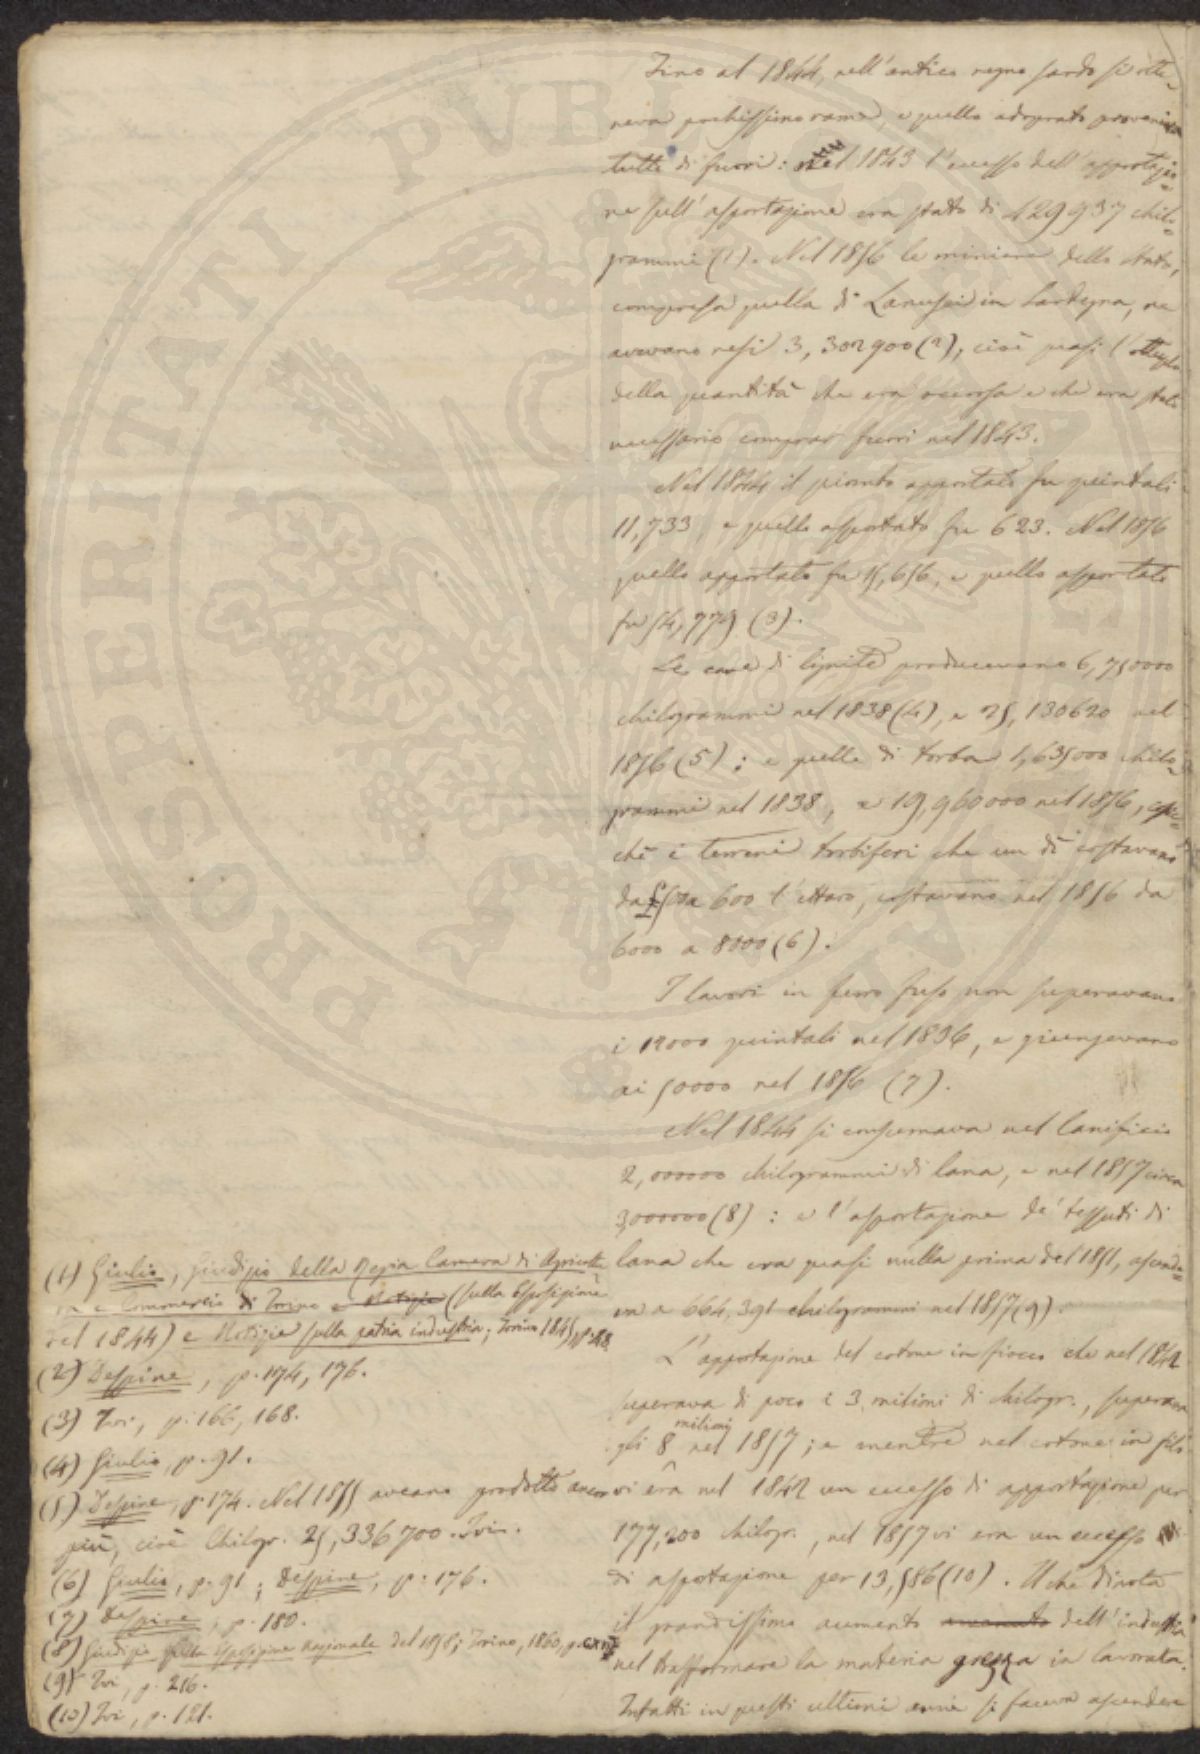 Fino al 1844, nell'antico regno sardo si otte-
neva pochissimo rame, e quello adoprato proveniva
tutto di fuori: nel 1843 l'eccesso dell'apportazio=
ne sull'asportazione era stato di 429937 chilo=
grammi (1). Nel 1856 le miniere dello Stato,
compresa quella di Lanusei in Sardegna, ne
avevano resi 3,302900 (2), cioè quasi l'ottuplo
della quantità che era occorsa e che era stato
necessario comprar fuori nel 1843.
Nel 1844 il piombo apportato fu quintali
11,733, e quello asportato fu 623. Nel 1856
quello apportato fu 15,656, e quello asportato
fu 54,779 (3).
Le cave di lignite producevano 6,750000
chilogrammi nel 1838 (4), e 25,130620 nel
1856 (5); e quelle di torba 1,635000 chilo=
grammi nel 1838, e 19,960000 nel 1856,
chè i terreni torbiferi che un dì costavano
da 500 a 600 l'ettaro, costavano nel 1856 da
6000 a 8000 (6).
I lavori in ferro fuso non superavano
i 12000 quintali nel 1836, e giungevano
ai 50000 nel 1856 (7).
Nel 1844 si consumava nel lanificio
2,000000 chilogrammi di lana, e nel 1857 circa
3,000000 (8): e l'asportazione de' tessuti di
lana che era quasi nulla prima del 1851, ascende=
va a 664,391 chilogrammi nel 1857 (9).
L'apportazione del cotone in fiocco che nel 1842
superava di poco i 3 milioni di chilogr., superava
gli 8 milioni nel 1857; e mentre nel cotone in filo
vi era nel 1842 un eccesso di apportazione per
177,200 chilogr., nel 1857 vi era un eccesso
di aspotazione per 13,586 (10). Il che dinota
il grandissimo aumento aumento dell'industria
nel trasformare la materia grezza in lavorata.
Infatti in questi ultimi anni si faceva ascendere
(1) Giulio, Giudizio della Regia Camera di Agricoltu
ra e Commercio di Torino e Notizie (sulla Esposizione
del 1844) e Notizie sulla patria industria; Torino 1845, p. 48
(2) Despine, p. 174, 176.
(3) Ivi, p. 166, 168.
(4) Giulio, p. 91.
(5) Despine, p. 174. Nel 1855 aveano prodotto ancor
più, cioè Chilogr. 25,336700. Ivi.
(6) Giulio, p. 91; Despine, p. 176.
(7) Despine, p. 180.
(8) Giudizi sulla Esposizione nazionale del 1858; Torino, 1860, p.
(9) Ivi, p. 216.
(10) Ivi, p. 121.
PROSPERITATI PVBLICAE